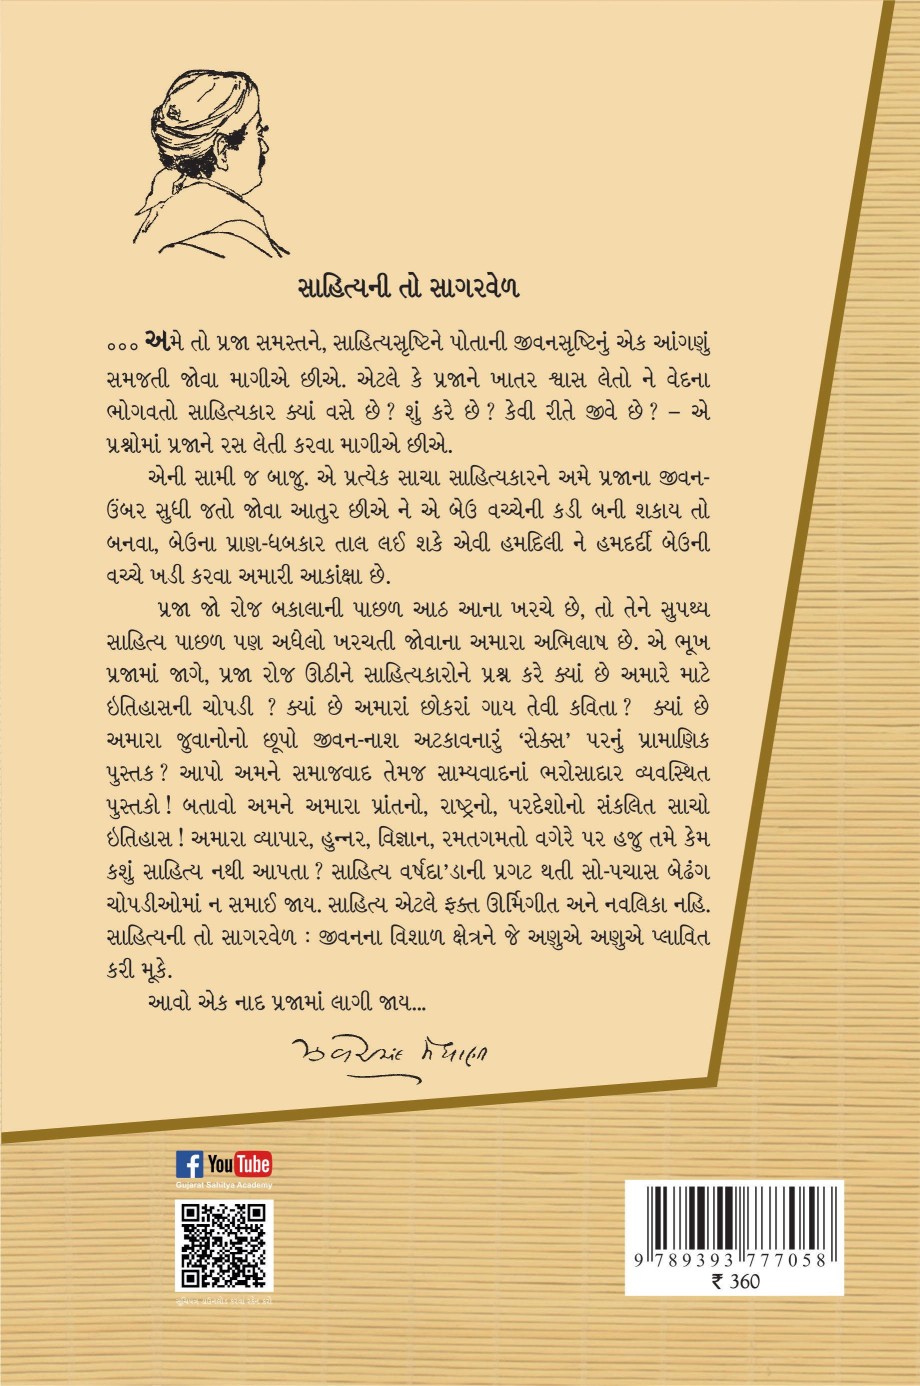 સાહિત્યની તો સાગરવેળ
૦૦૦ અમે તો પ્રજા સમસ્તને, સાહિત્યસૃષ્ટિને પોતાની જીવનસૃષ્ટિનું એક આંગણું
સમજતી જોવા માગીએ છીએ. એટલે કે પ્રજાને ખાતર શ્વાસ લેતો ને વેદના
ભોગવતો સાહિત્યકાર ક્યાં વસે છે? શું કરે છે? કેવી રીતે જીવે છે? – એ
પ્રશ્નોમાં પ્રજાને રસ લેતી કરવા માગીએ છીએ.
એની સામી જ બાજુ. એ પ્રત્યેક સાચા સાહિત્યકારને અમે પ્રજાના જીવન-
ઉંબર સુધી જતો જોવા આતુર છીએ ને એ બેઉ વચ્ચેની કડી બની શકાય તો
બનવા, બેઉના પ્રાણ-ધબકાર તાલ લઈ શકે એવી હમદિલી ને હમદર્દી બેઉની
વચ્ચે ખડી કરવા અમારી આકાંક્ષા છે.
પ્રજા જો રોજ બકાલાની પાછળ આઠ આના ખરચે છે, તો તેને સુપથ્ય
સાહિત્ય પાછળ પણ અધેલો ખરચતી જોવાના અમારા અભિલાષ છે. એ ભૂખ
પ્રજામાં જાગે, પ્રજા રોજ ઊઠીને સાહિત્યકારોને પ્રશ્ન કરે ક્યાં છે અમારે માટે
ઇતિહાસની ચોપડી ? ક્યાં છે અમારાં છોકરાં ગાય તેવી કવિતા? ક્યાં છે
અમારા જુવાનોનો છૂપો જીવન-નાશ અટકાવનારું ‘સેક્સ’ પરનું પ્રામાણિક
પુસ્તક? આપો અમને સમાજવાદ તેમજ સામ્યવાદનાં ભરોસાદાર વ્યવસ્થિત
પુસ્તકો! બતાવો અમને અમારા પ્રાંતનો, રાષ્ટ્રનો, પરદેશોનો સંકલિત સાચો
ઇતિહાસ! અમારા વ્યાપાર, હુન્નર, વિજ્ઞાન, રમતગમતો વગેરે પર હજુ તમે કેમ
કશું સાહિત્ય નથી આપતા? સાહિત્ય વર્ષદા’ડાની પ્રગટ થતી સો-પચાસ બેઢંગ
ચોપડીઓમાં ન સમાઈ જાય. સાહિત્ય એટલે ફક્ત ઊર્મિગીત અને નવલિકા નહિ.
સાહિત્યની તો સાગરવેળ : જીવનના વિશાળ ક્ષેત્રને જે અણુએ અણુએ પ્લાવિત
કરી મૂકે.
આવો એક નાદ પ્રજામાં લાગી જાય...
ઝવેરચંદ મેઘાણી
f YouTube
Gujarat Sahitya Academy
9 789393 777058
₹ 360